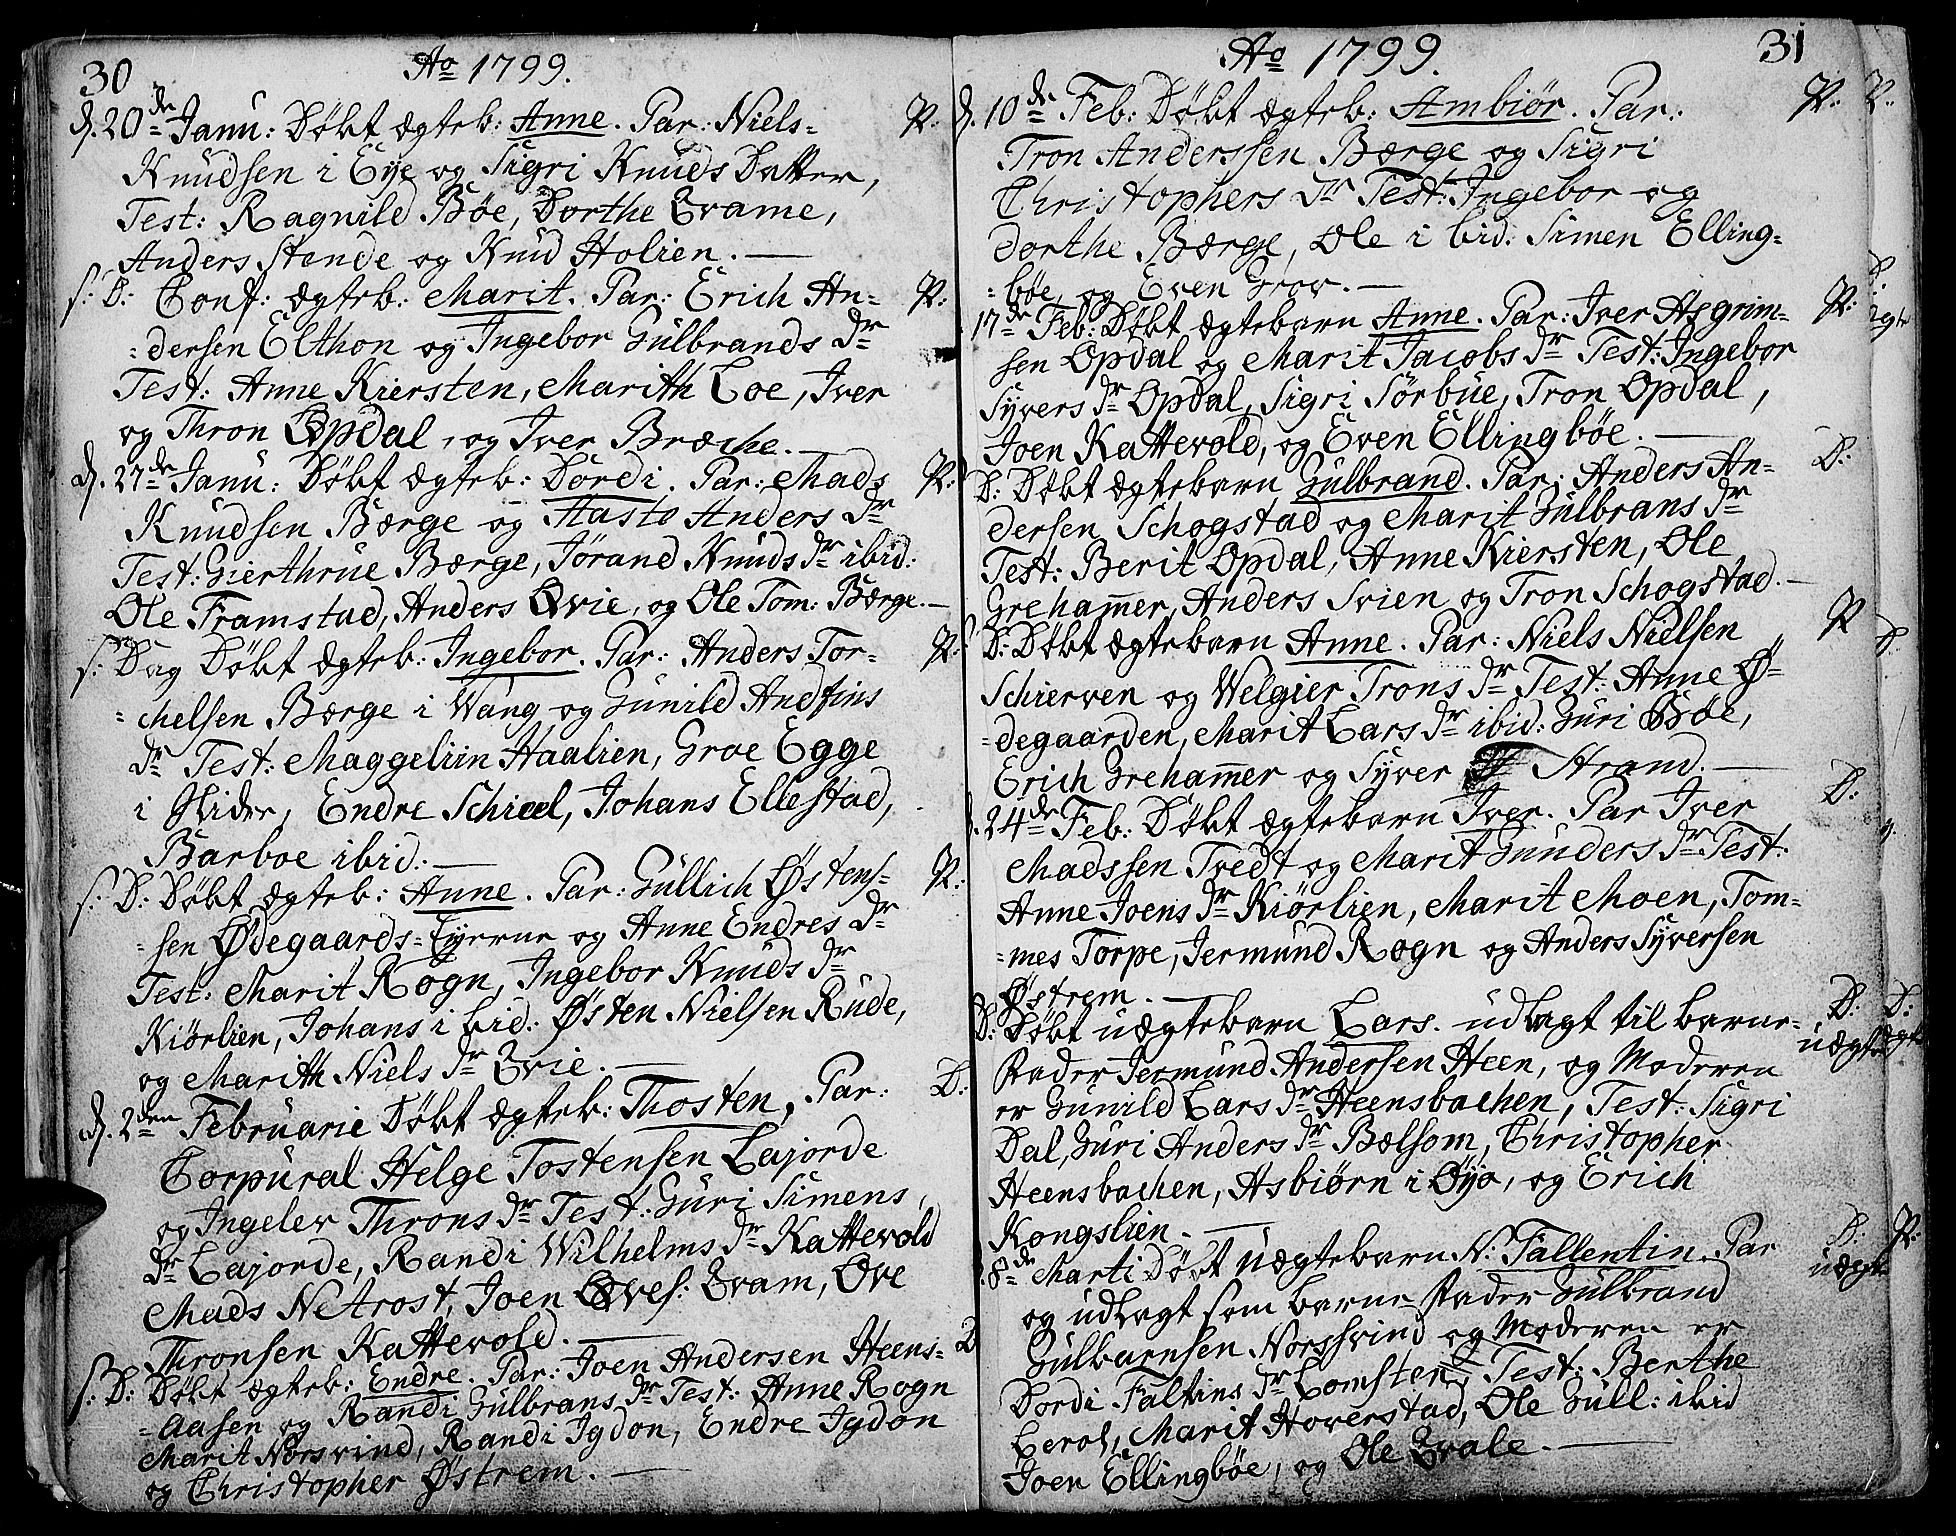 30
Ao 1799.
d. 20de Janu: Døbt ægteb: Anne. Par: Niels P:
Knudsen i Eye og Sigri Knuds Datter,
Test: Ragnild Bøe, Dorthe Qvame,
Anders Stende og Knud Holien.
s: D: Conf: ægteb: Marit. Par: Erich An= P:
=dersen Elthon og Ingebor Gulbrands Dr
Test: Anne Kiersten, Marith Loe, Iver
og Thron Opdal, og Iver Bræche.
d. 27de Janu: Døbt ægteb: Dordi. Par: Mads P:
Knudsen Bærge og Aaste Anders Dr
Test: Gierthrue Bærge, Jørand Knuds Dr ibid:
Ole Framstad, Anders Qvie, og Ole Tom: Bærge.
s: Dag Døbt ægteb: Ingebor. Par: Anders Tor= P:
=chelsen Bærge i Wang og Gunild Andfins
Dr Test: Maggeliin Haalien, Groe Egge
i Slidre, Endre Schieel, Johans Ellestad,
Barboe ibid:
s: D: Døbt ægteb: Anne. Par: Gullich Østens= P:
=sen Ødegaards=Eyerne og Anne Endres Dr
Test: Marit Rogn, Ingebor Knuds Dr
Kiørlien, Johans i bid: Østen Nielsen Rude,
og Marith Niels Dr Qvie.
d. 2den Februarie Døbt ægteb: Thosten, Par: D:
Corpural Helge Tostensen Lajorde
og Ingeler Throns Dr Test: Guri Simens
Dr Lajorde, Randi Wilhelms Dr Kattevold
Mads Netrost, Joen Oves: Qvam, Ove
Thronsen Kattevold.
s: D: Døbt ægteb: Endre. Par: Joen Andersen Heens= D
=aasen og Randi Gulbrans Dr Test: Anne Rogn
Marit Norsvind, Randi Igdon, Endre Igdon
og Christopher Østrem.
31
Ao 1799.
d. 10de Feb: Døbt ægteb: Ambiør. Par: P:
Tron Anderssen Bærge og Sigri
Christophers Dr Test: Ingebor og
Dorthe Bærge, Ole i bid: Simen Elling=
=bøe, og Even Grov.
17de Feb: Døbt ægtebarn Anne. Par: Iver Asgrim= P:
sen Opdal og Marit Jacobs Dr Test: Ingebor
Syvers Dr Opdal, Sigri Sørbue, Tron Opdal,
Joen Kattevold, og Even Ellingbøe.
D: Døbt ægtebarn Gulbrand. Par: Anders An= D:
dersen Schogstad og Marit Gulbrans Dr
Test: Berit Opdal, Anne Kiersten, Ole
Grehamer, Anders Svien og Tron Schogstad.
D: Døbt ægtebarn Anne. Par: Niels Nielsen P
Schierven og Welgier Trons Dr Test: Anne Ø=
=degaarden, Marit Lars Dr ibid: Guri Bøe,
Erich Grehamer og Syver Strand.
d. 24de Feb: Døbt ægtebarn Iver. Par Iver D:
Madssen Tvedt og Marit Gunders Dr Test:
Anne Joens Dr Kiørlien, Marit Moen, Tom=
=mes Torpe, Jermund Rogn og Anders Syversen
Østrem.
D: Døbt uægtebarn Lars. udlagt til barne= D:
uægte
Fader Jermund Andersen Heen, og Moderen
er Gunild Lars Dr Heensbachen, Test: Sigri
Dal, Guri Anders Dr Bælsom, Christopher
Heensbachen, Asbiørn i Øye, og Erich
Kongslien.
8de Marti Døbt uægtebarn N: Fallentin. Par D:
uægte
og udlagt som barne Fader Gulbrand
Gulbarnsen Norssvind og Moderen er
Dordi Faltins Dr Lomsten, Test: Berthe
Lerol, Marit Hoverstad, Ole Gull: ibid
Joen Ellingbøe, og Ole Qvale.